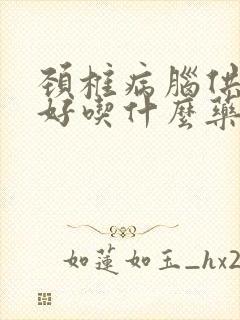 頚椎病腦供
好喫什麼藥
如蓮如玉_hx2